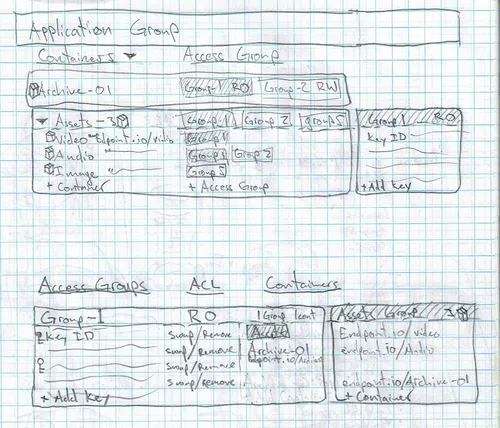 Application Group
Containers ▼ Access Group
Archive-01 Group-1 RO Group-2 RW
▼ Assets - 3 Group-1 Group 2 Group 3
Video endpoint.io/video Group 1
Audio Group 1 Group 2
Image Group 3
+ Container + Access Group
Group 1 RO
Key ID
+ Add Key
Access Groups ACL Containers
Group-1 RO 1 Group 1 cont
Key ID Swap/Remove
swap/Remove Archive-01
Swap/Remove endpoint.io/
Swap/remove
+ Add Key
Assets/Group 3
Endpoint.io/video
endpoint.io/Audio
endpoint.io/Archive-01
+ Container